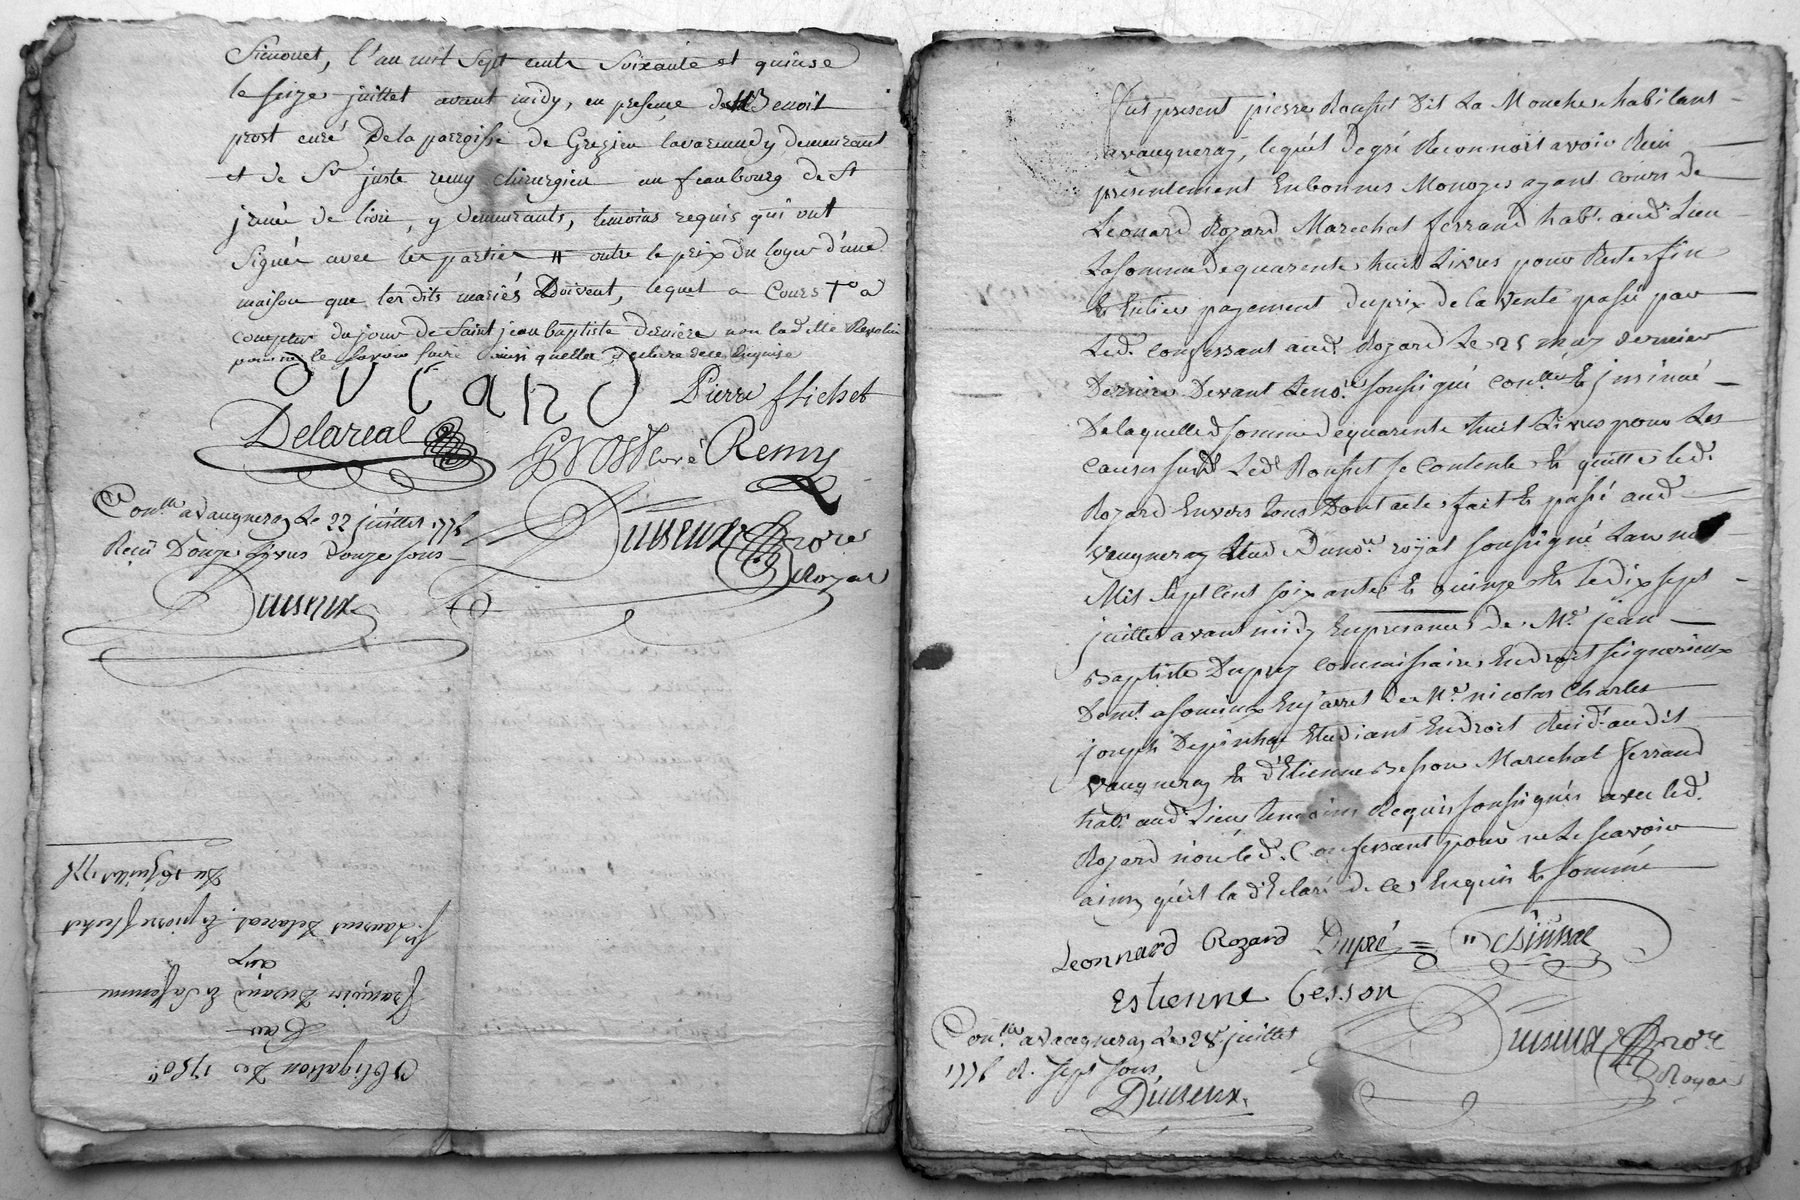 Simonet, l'an mil Sept cents Soixante et quinse
le seize juillet avant midy, en presence de Mr Benoit
prost curé De la parroisse de Grezieu lavarenne y demeurant
et de Sr juste remy chirurgien au feaubourg de St
jrené de lion, y demeurants, temoins requis qui ont
Signés avec les parties # outre le prix du loyer d'une
maison que les dits mariés Doivent, lequel a Cours
compter du jour de Saint jean baptiste derniere non ladille Revolin
pour ne le savoir faire ainsi quelle a declaré de ce enquise
DURAND Pierre fflichet
Delareal prost curé Remy
Conllé a Vaugneray Le 22 juillet 1775
Reçu Douze Livres Douze sous
Duiseux
Duiseux nore
Royal
Obligation De 1750#
Par
françois Durand & Sa femme
aux
Srs Laurent Delareal, & pierre flichet
Du 16 juillet 1775
Fut present pierre Rousset Dit La Mouche habitant
a vaugneray, lequel De gré Reconnoit avoir Reçu
presentement En bonnes Monoyes ayant cours de
Léonard Rozard Marechal ferrand habt. aud. Lieu
La somme de quarente huit Livres pour Reste fin
& Entier payement du prix de la vente passé par
Led. confessant aud. Rozard Le 25 may dernier
Dernier Devant Le nore soussigné conllé & jnsinué
De laquelle somme de quarente huit Livres pour Les
causes susd. Led. Rousset se contente & quitte led.
Rozard Envers tous Dont acte, fait & passé aud.
vaugneray Etude Du nore royal soussigné L'an
Mil sept cent soixante & quinze & le dix sept
juillet avant midy En presence de Mr. jean
Baptiste Dupré commissaire En droit seigneriaux
Demt. a Soucieux En jarret De Mr. nicolas Charles
joseph Depinhac Etudiant En droit Resid. audit
vaugneray & d'Etienne Besson Marechal ferrand
habt. aud. Lieu temoins Requis soussignés avec led.
Rozard non led. Confessant pour ne Le scavoir
ainsy qu'il la d'Eclaré de ce Enquis & sommé
Leonnard Rozard Dupré
Estienne besson
Conllé a vaugneray Le 28 juillet
1775 R. sept sous
Duiseux
Duiseux nore
Royal